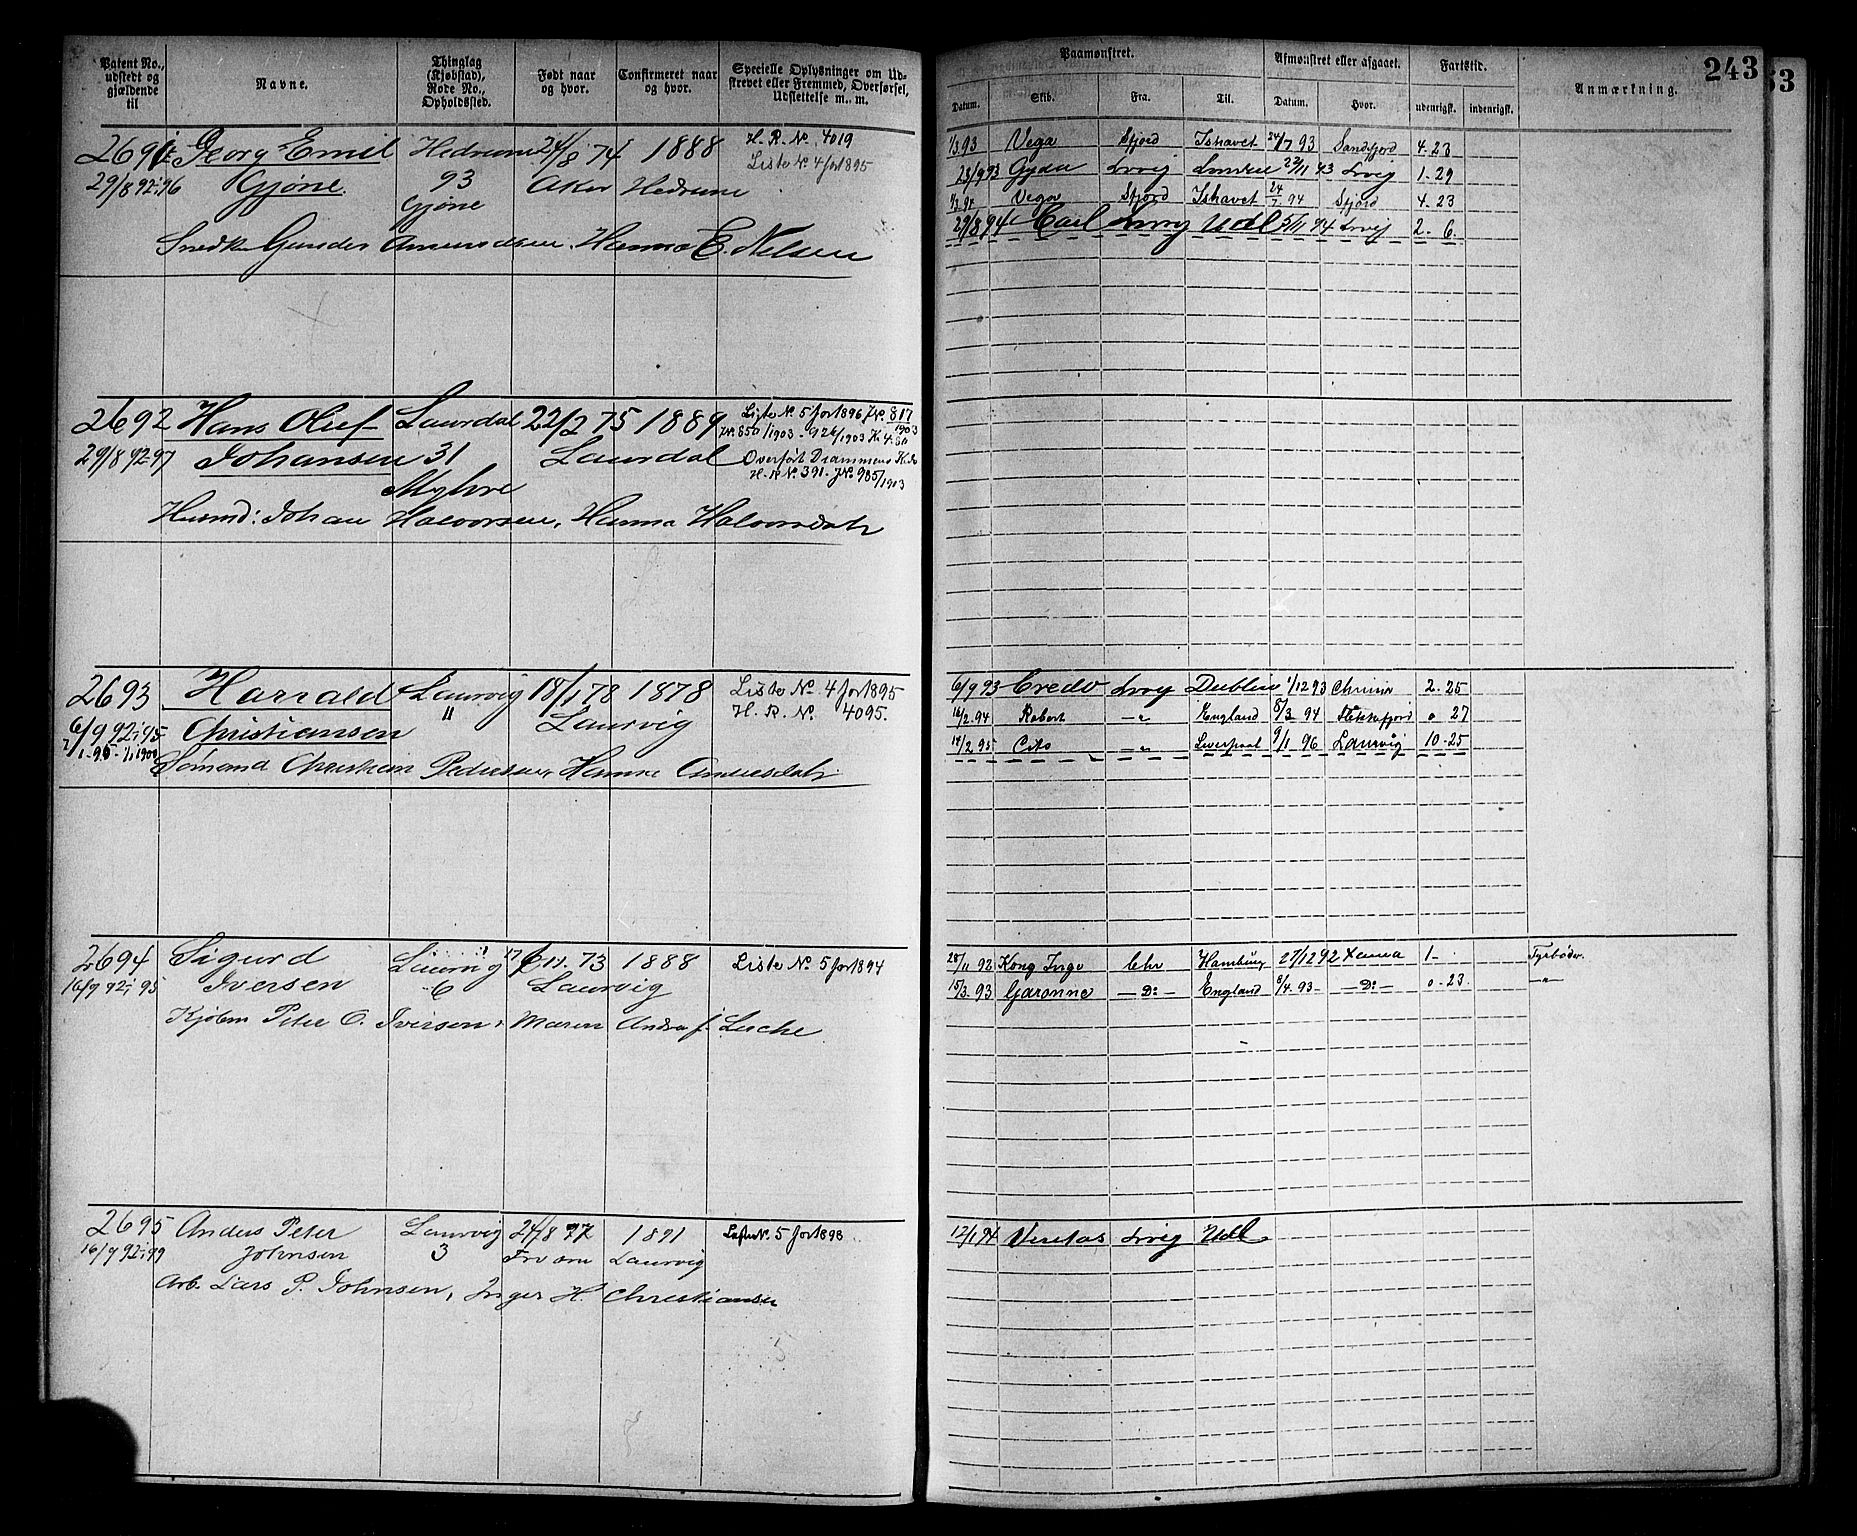 Patent No., udstedt og gjældende til
Navne.
Thinglag (Kjøbstad), Rode No., Opholdssted.
Født naar og hvor.
Confirmeret naar og hvor.
Specielle Oplysninger om Udstrevet eller Fremmed, Overførsel, Udslettelse m. m.
Paamønstret.
Afmønstret eller afgaaet.
Fartstid.
Anmærkning.
243
53
Datum. Skib. Fra. Til. Datum. Hvor. udenrigsk. indenrigsk.
2691 Georg Emil Hedrum 24/8 74 1888 H. R. No. 4019
Liste No 4 for 1895
29/8 92-96 Gjøne 93 Aker Hedrum
Gjøne
Snedk Gunder Amundsen. Hanna E. Nelsen
1/3 93 Vega Sfjord Ishavet 24/7 93 Sandfjord 4-23
23/9 93 Gyda Lrvig London 22/11 93 Lrvig 1-29
1/3 94 Vega Sfjord Ishavet 24/7 94 Sfjord 4-23
29/8 94 Carl Lrvig Udl 5/11 94 Lrvig 2-6
2692 Hans Oluf Laurdal 22/2 75 1889 Liste No. 5 for 1896 JNo. 817/1903
JNo. 850/1903 - 926/1903
29/8 92-97 Johansen 31 Laurdal Overført Drammens
H. R No. 391. JNo 985/1903
Myhre
Husmd: Johan Halvorsen, Hanna Halvorsdatr
2693 Harrald Laurvig 18/1 78 1878 Liste No. 4 for 1895
11 H. R. No. 4095.
6/9 92-95 Christiansen Laurvig
1/1-95-1/1 1900
Sømand Christian Pedersen, Hanna Andersdatr
6/9 93 Credo Lrvg Dublin 1/12 93 2-25
16/2.94 Robert -"- England 8/3 94 Flekkefjord 0 27
14/2 95 Cito -"- Liverpool 9/1 96 Laurvig 10-25
2694 Sigurd Laurvig 73 1888 Liste No. 5 for 1894
16/9 92-95 Iversen 6 Laurvig
Kjøbm Peter O. Iversen, Maren Andrea f. Lesche
28/11 92 Kong Inge Chr Hamburg 27/12 92 1- Fyrbøder.
15/3.93 Garonne -Do- England 6/4.93- -Do- 0-23. -"-
2695 Anders Peter Laurvig 24/8 77 1891 Liste No. 5 for 1898
16/9 92-99 Johnsen 3 Laurvig
Arb. Lars P. Johnsen, Inger H. Christiansen
12/1 94 Veritas Lrvig Udl